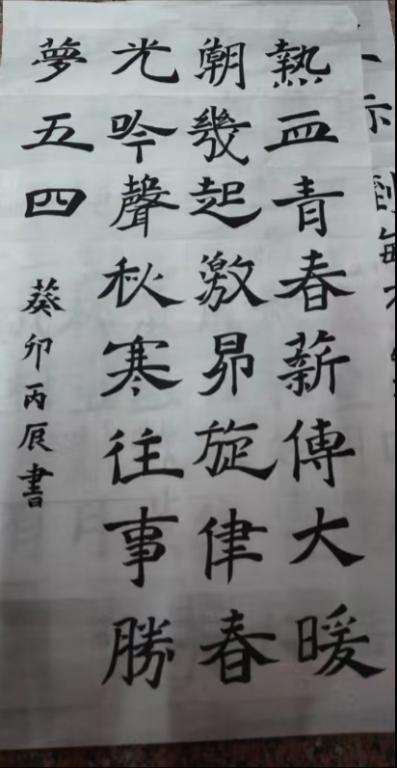 熱血青春薪傳大暖
潮幾起激昂旋律春
光吟聲秋寒往事勝
夢五四
葵卯丙辰書